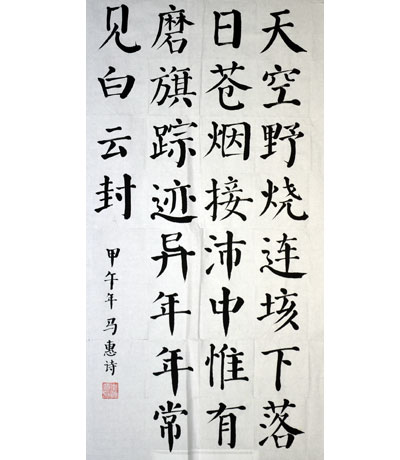 天空野烧连垓下落
日苍烟接沛中惟有
磨旗踪迹异年年常
见白云封
甲午年马惠诗